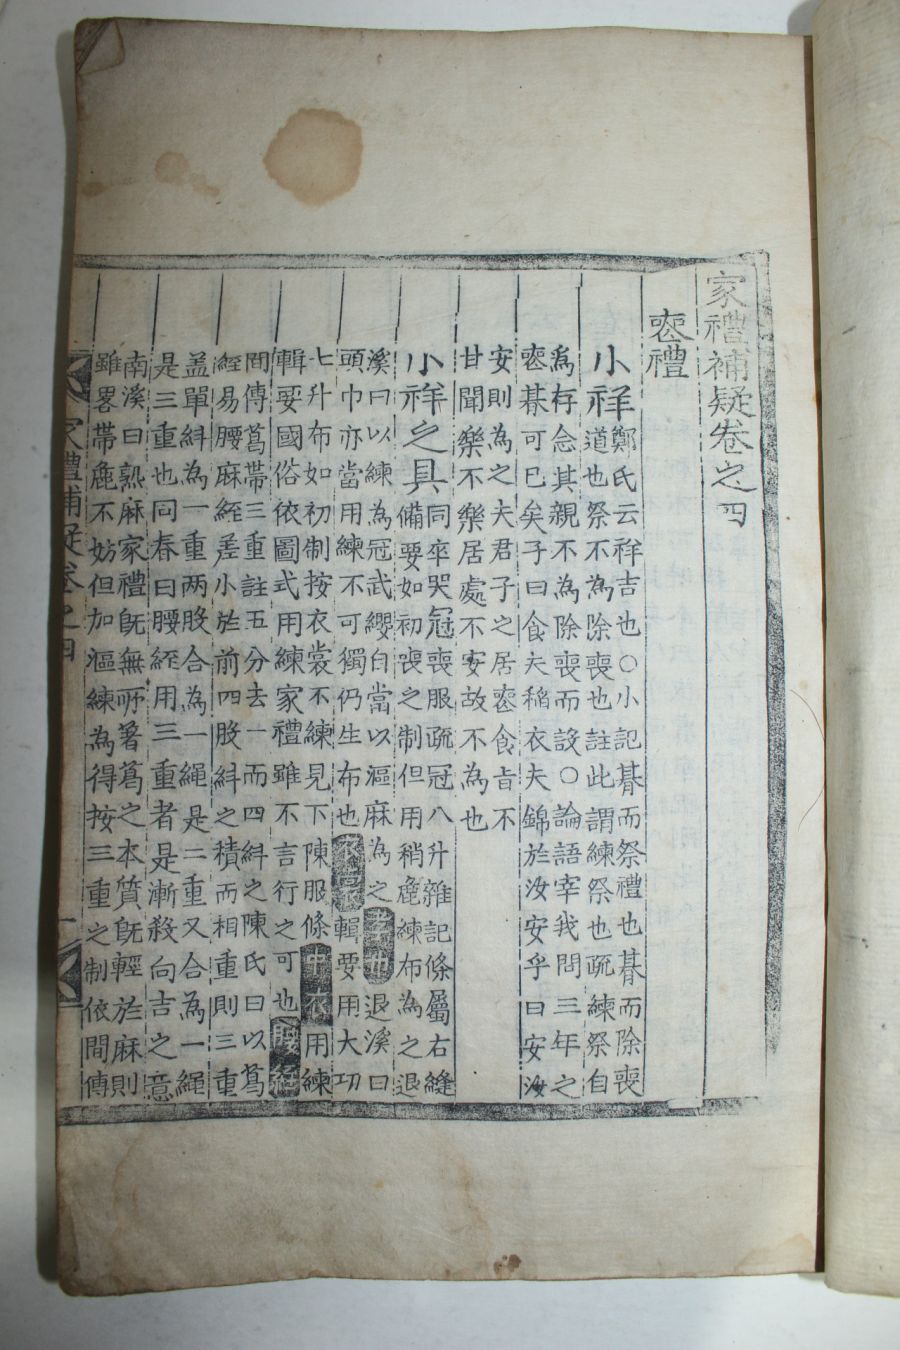 家禮補疑卷之四
喪禮
小祥鄭氏云祥吉也○小記朞而祭禮也朞而除喪
道也祭不為除喪也註此謂練祭也疏練祭自
為存念其親不為除喪而設○論語宰我問三年之
喪朞可已矣子曰食夫稻衣夫錦於汝安乎曰安汝
安則為之夫君子之居喪食旨不
甘聞樂不樂居處不安故不為也
小祥之具同卒哭冠喪服疏冠八升雜記條屬右縫
備要如初喪之制但用稍麁練布為之退
溪曰以練為冠武纓自當以漚麻為之孝巾退溪曰
頭巾亦當用練不可獨仍生布也衣裳輯要用大功
七升布如初制按衣裳不練見下陳服條中衣用練
輯要國俗依圖式用練家禮雖不言行之可也腰絰
間傳葛帶三重註五分去一而四糾之陳氏曰以葛
絰易腰麻絰差小於前四股糾之積而相重則三重
盖單糾為一重兩股合為一繩是二重又合為一繩
是三重也同春曰腰絰用三重者是漸殺向吉之意
南溪曰熟麻家禮旣無所著葛之本質旣輕於麻則
雖畧帶麁不妨但加漚練為得按三重之制依間傳
家禮補疑卷之四